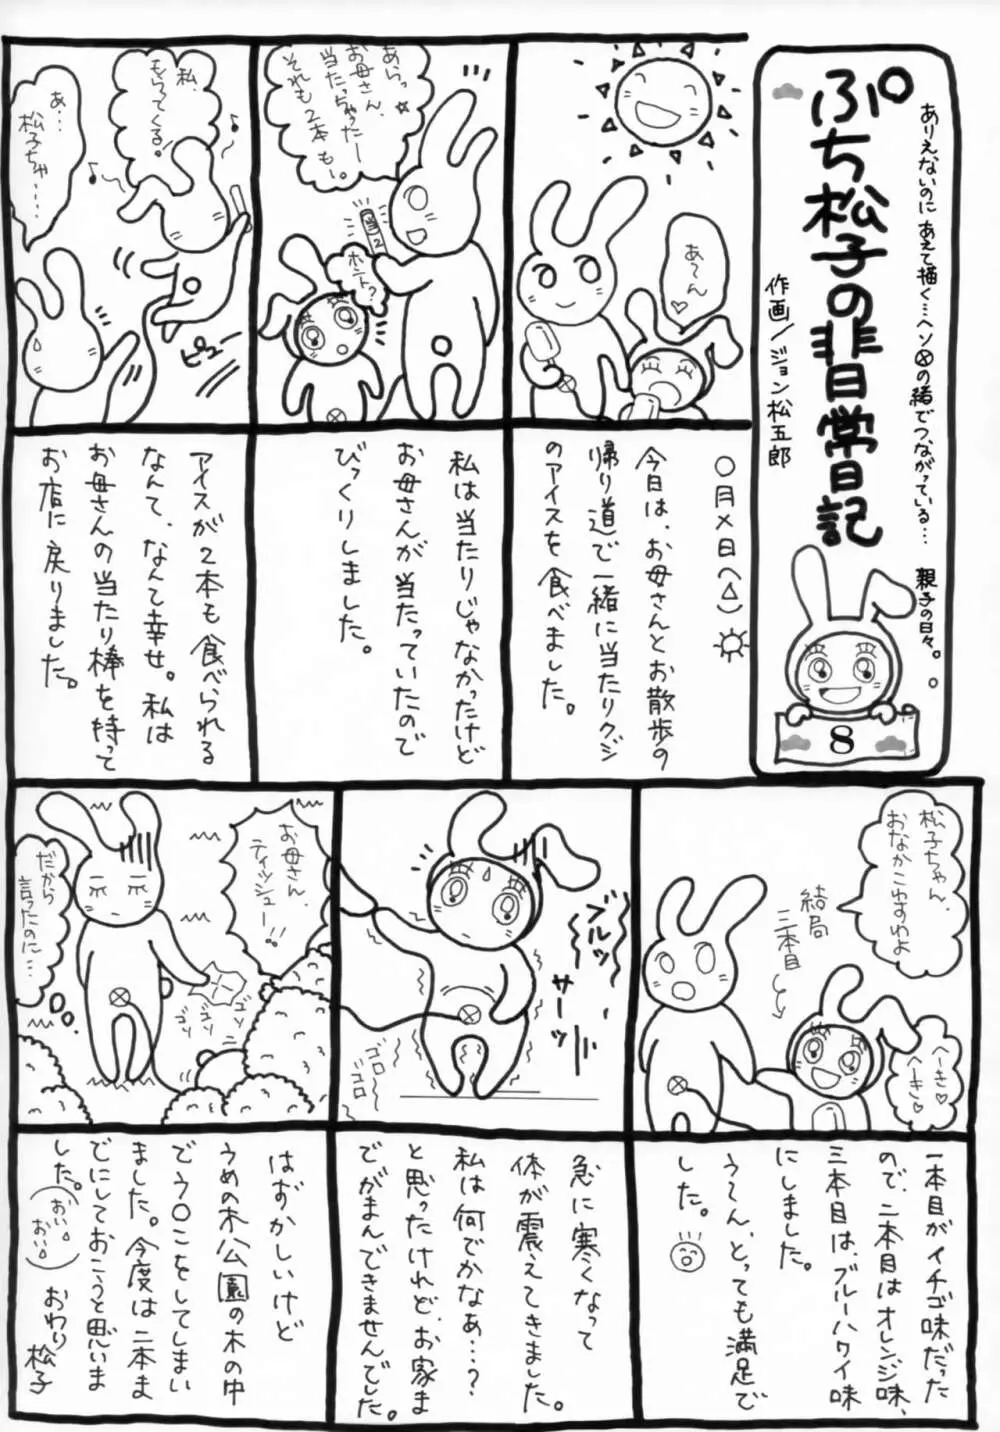 ありえないのにあえて描く…ヘソ⊗の緒でつながっている…親子の日々。
ぷち松子の非日常日記
作画/ジョン松五郎
8
あ~ん♡
○月×日(△)☼
今日は、お母さんとお散歩の
帰り道で一緒に当たりクジ
のアイスを食べました。
あらっ☆
お母さん、
当たっちゃったー
それも2本も~。
当2
ホント?
私は当たりじゃなかったけど
お母さんが当たっていたので
びっくりしました。
私、
もらってくる!
♪
♪
あ…
松子ちゃ……
ピュー
アイスが2本も食べられる
なんて、なんて幸せ。私は
お母さんの当たり棒を持って
お店に戻りました。
松子ちゃん、
おなかこわすわよ
結局
三本目
へーき♡
へーき♡
一本目がイチゴ味だった
ので、二本目はオレンジ味、
三本目は、ブルーハワイ味
にしました。
う~ん、とっても満足で
した。
ブルッ
サーッ
ゴロ~
ゴゴロ
急に寒くなって
体が震えてきました。
私は何でかなぁ…?
と思ったけれど、お家ま
でがまんできませんでした。
お母さん、
ティッシュー!!
ゴソ
ゴソ
ゴソ
だから
言ったのに…
はずかしいけど
うめの木公園の木の中
でう○こをしてしまい
ました。今度は二本ま
でにしておこうと思いま
した。
おいおい
おわり
松子